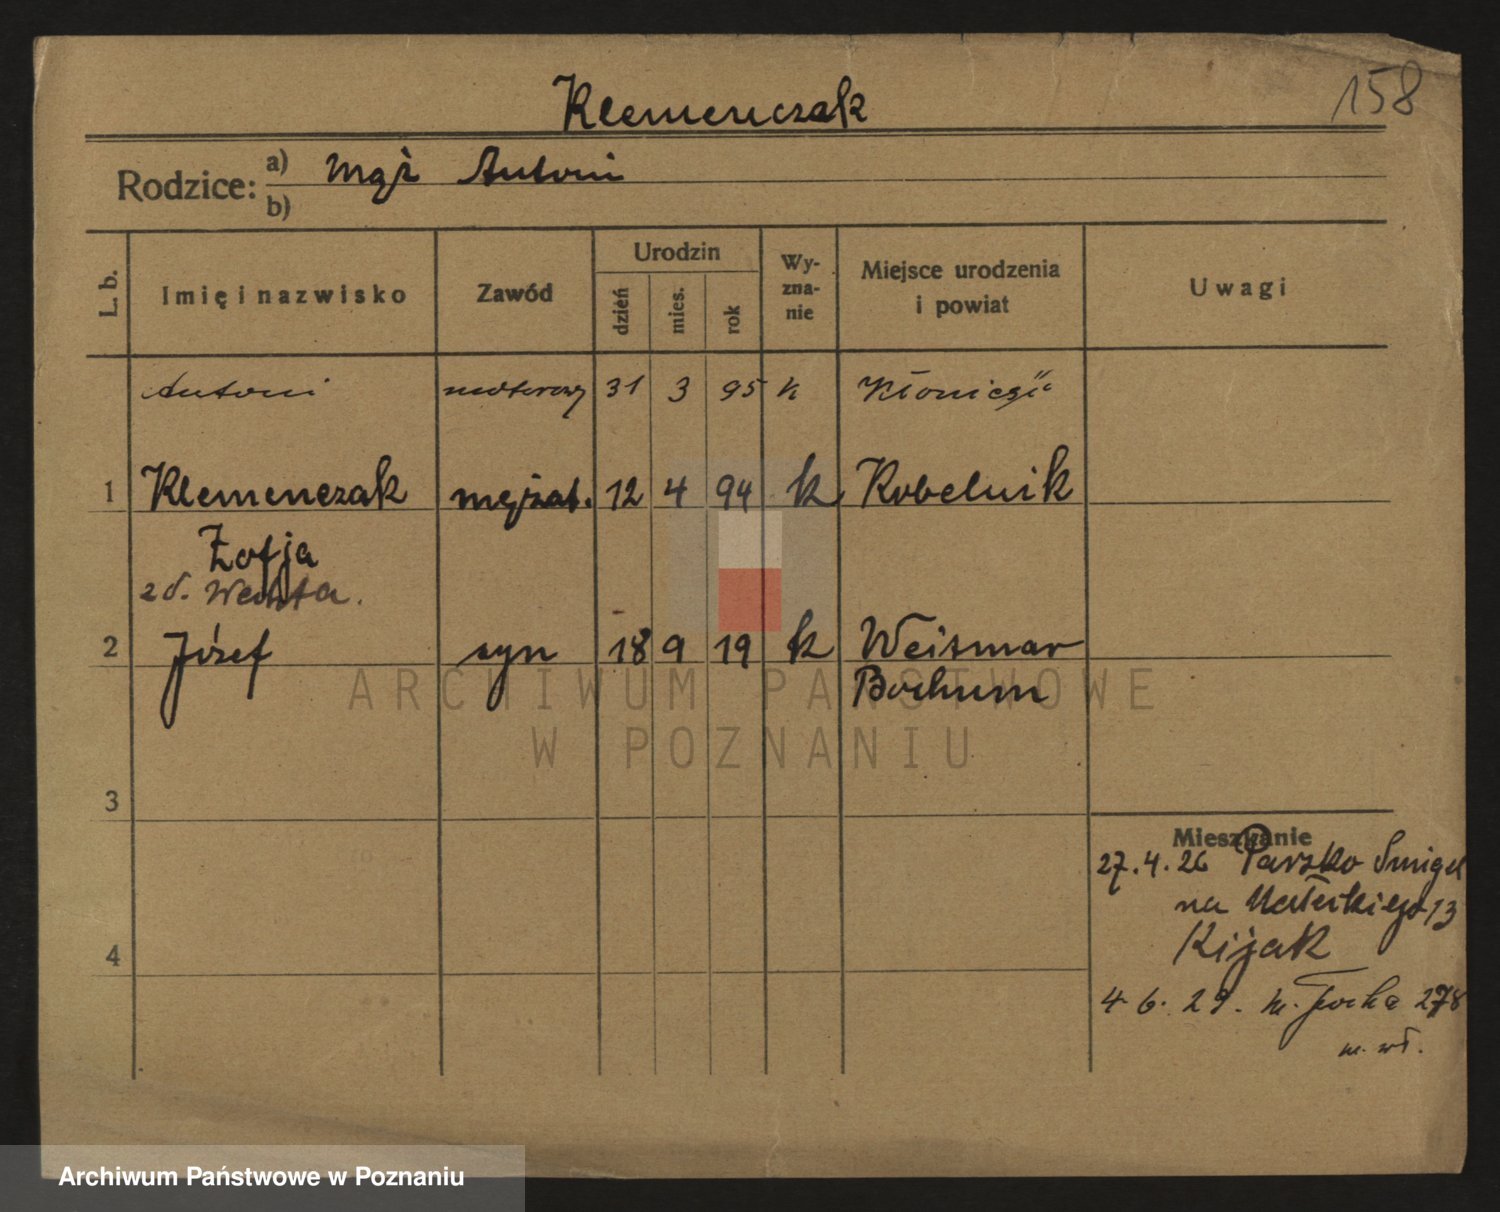 158
Klemenczak
Rodzice: a) mąż Antoni
b)
L. b. Imię i nazwisko Zawód Urodzin dzień mies. rok Wy-zna-nie Miejsce urodzenia i powiat Uwagi
Antoni motorowy 31 3 95 k
1 Klemenczak mężat. 12 4 94 k Kobelnik
Zofja
zd. Wechta.
2 Józef syn 18 9 19 k Weitmar
Bochum
ARCHIWUM PAŃSTWOWE
W POZNANIU
3
Mieszkanie
27.4.26 Parzko Smigel
na Małeckiego 13
Kijak
4
4. 6. 29. 278
m. wł.
Archiwum Państwowe w Poznaniu